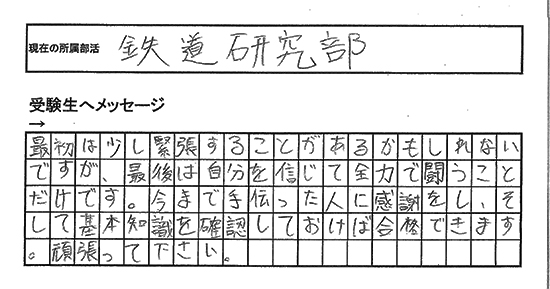 現在の所属部活 鉄道研究部
受験生へメッセージ
→
最初は少し緊張することがあるかもしれない
ですが、最後は自分を信じて全力で闘うこと
だけです。今まで手伝った人に感謝をし、そ
して基本知識を確認しておけば合格できます
。頑張って下さい。